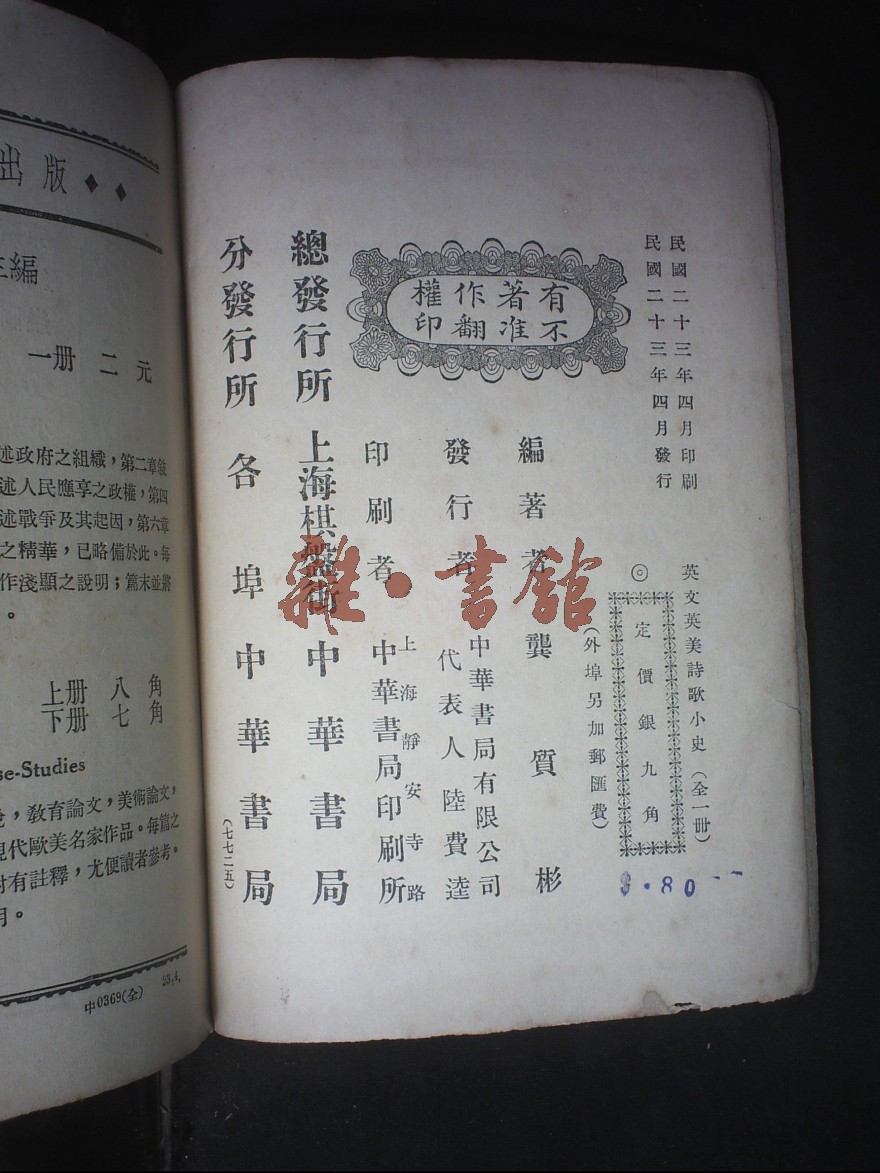 民國二十三年四月印刷
民國二十三年四月發行
英文英美詩歌小史(全一冊)
◎
定價銀九角
(外埠另加郵匯費)
有著作權
不准翻印
編著者 龔質彬
發行者 中華書局有限公司
代表人陸費逵
印刷者 上海靜安寺路
中華書局印刷所
總發行所 上海棋盤街 中華書局
分發行所 各埠中華書局
(七七二五)
雜·書館
8·80
出版◆◆
編
一册 二元
述政府之組織,第二章敍
述人民應享之政權,第四
述戰爭及其起因,第六章
之精華,已略備於此。每
作淺顯之說明;篇末並將
。
上册 八角
下册 七角
se-Studies
,教育論文,美術論文,
現代歐美名家作品。每篇之
附有註釋,尤便讀者參考。
用。
中0369(全) 23,4,